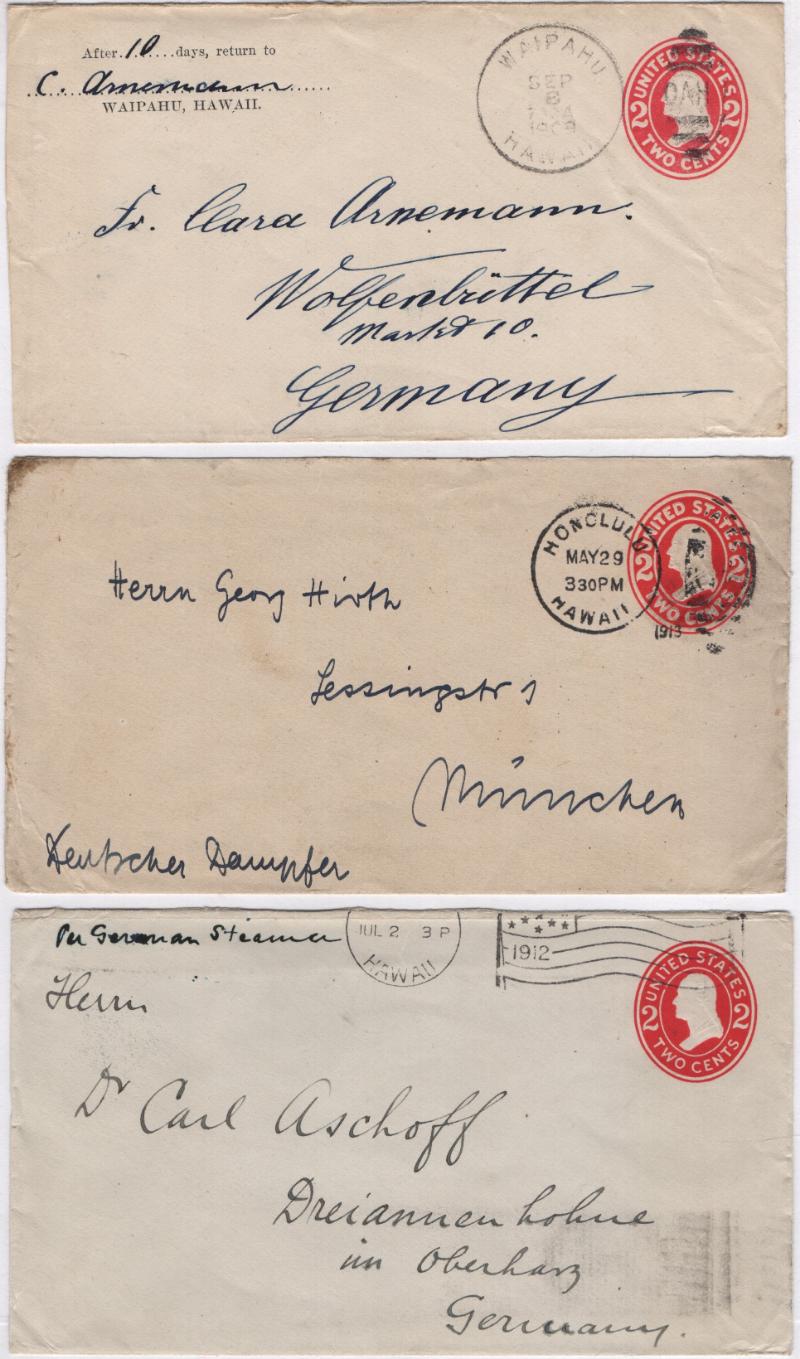 After 10 days, return to
C. Arnemann
WAIPAHU, HAWAII.
WAIPAHU
SEP
8
1909
HAWAII
UNITED STATES
2 2
TWO CENTS
Fr. Clara Arnemann.
Wolfenbüttel
Markt 10.
Germany
HONOLULU
MAY 29
330 PM
HAWAII
1913
UNITED STATES
2 2
TWO CENTS
Herrn Georg Hirth
Lessingstr 1
München
Deutscher Dampfer
Per German Steamer
JUL 2 3 P
HAWAII
1912
UNITED STATES
2 2
TWO CENTS
Herrn
Dr Carl Aschoff
Dreiannenhohne
im Oberharz
Germany.